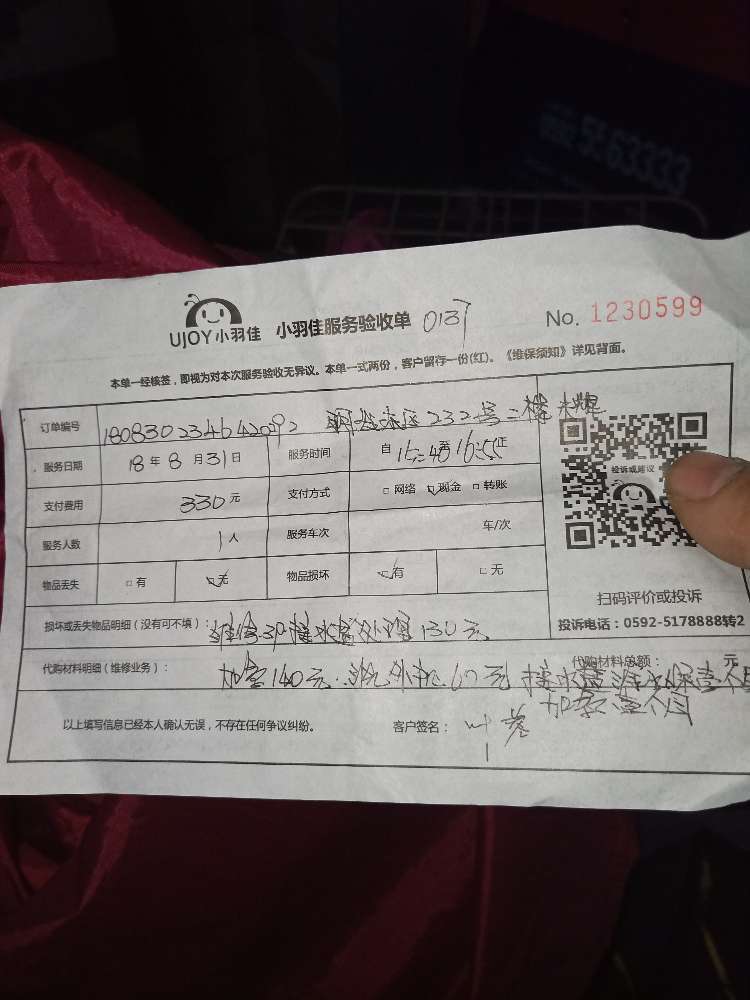 5563333
UJOY小羽佳 小羽佳服务验收单 No. 1230599
本单一经核签，即视为对本次服务验收无异议。本单一式两份，客户留存一份(红)。《维保须知》详见背面。
订单编号 232号二楼
服务日期 18年8月31日 服务时间 自15:40至16:55止
支付费用 330元 支付方式 □网络 □现金 □转账
服务人数 1人 服务车次 年/次
物品丢失 □有 □无 物品损坏 □有 □无
投诉或建议
扫码评价或投诉
投诉电话：0592-5178888转2
损坏或丢失物品明细（没有可不填）： 接水盘处理130元
代购材料明细（维修业务）： 加氟140元 洗外机60元 代购材料总额： 元
壹个月
以上填写信息已经本人确认无误，不存在任何争议纠纷。 客户签名： 叶